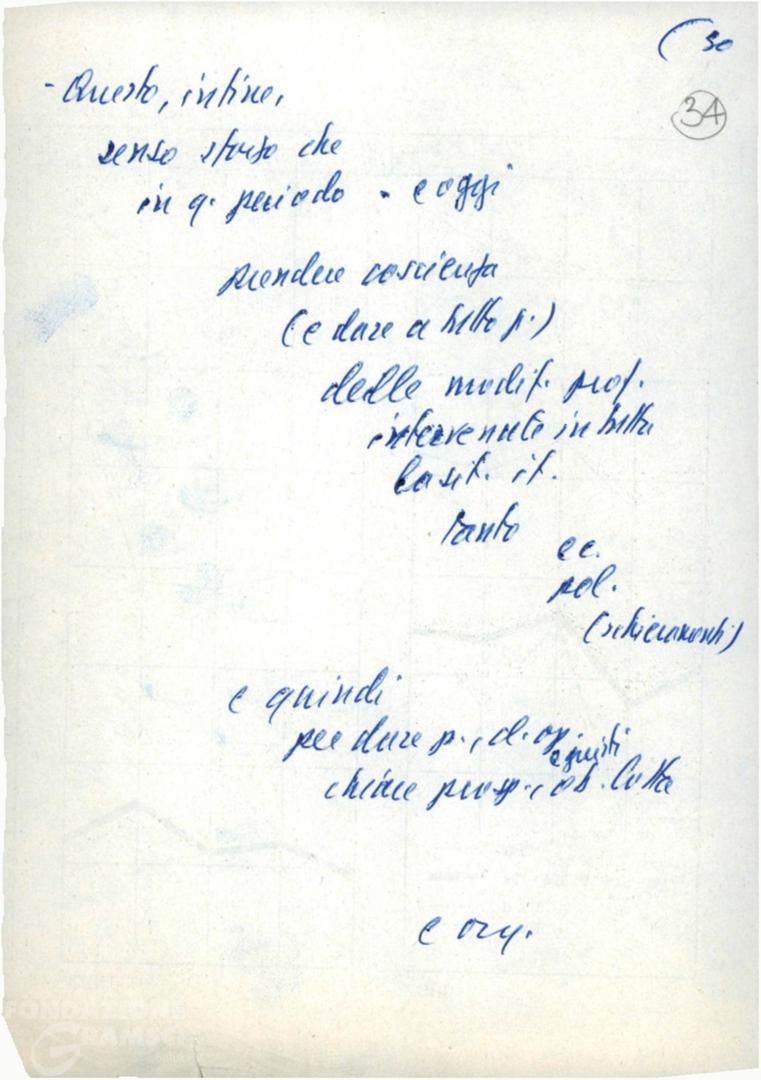 (30
34
- Questo, infine,
senso sforzo che
in q. periodo - e oggi
prendere coscienza
(e dare a tutto p.)
delle modif. prof.
intervenute in tutta
la sit. it.
tanto ec.
pol.
(schieramenti)
e quindi
per dare p., cl. op.
e giusti
chiare prosp., ob. lotta
e org.
FONDAZIONE
GRAMSCI